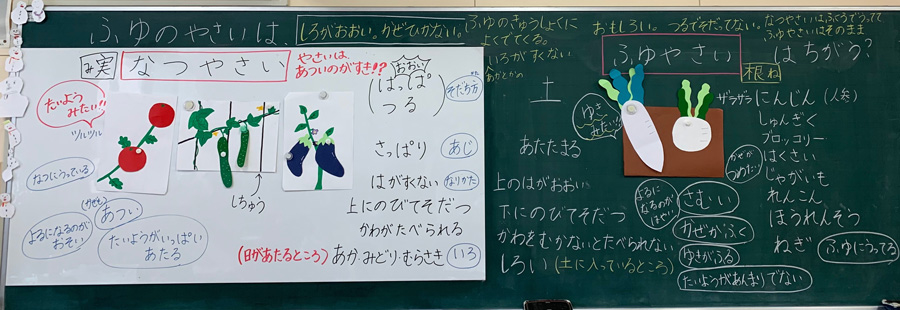 ふゆのやさいは
しろがおおい。かぜひかない。
ふゆのきゅうしょくに
よくでてくる。
いろがすくない
おもしろい。つるでそだってない。
なつやさいはふくろでうってて
ふゆやさいはそのまま
み
実
なつやさい
やさいは、
あついのがすき!?
おおい
はっぱ
つる
そだち方
たいよう
みたい!!
ツルツル
なつにうっている
(かぜも)
あつい
よるになるのが
おそい
たいようがいっぱい
あたる
しちゅう
さっぱり
あじ
はがすくない
なりかた
上にのびてそだつ
かわがたべられる
(日があたるところ)
あか・みどり・むらさき
いろ
ふゆやさい
はちがう?
根 ね
土
ゆき
みたい!!
あたたまる
上のはがおおい
下にのびてそだつ
かわをむかないとたべられない
しろい(土に入っているところ)
かぜが
つめたい
よるに
なるのが
はやい
さむい
かぜがふく
ゆきがふる
たいようがあんまりでない
ザラザラ
にんじん(人参)
しゅんぎく
ブロッコリー
はくさい
じゃがいも
れんこん
ほうれんそう
ねぎ
ふゆにうってる